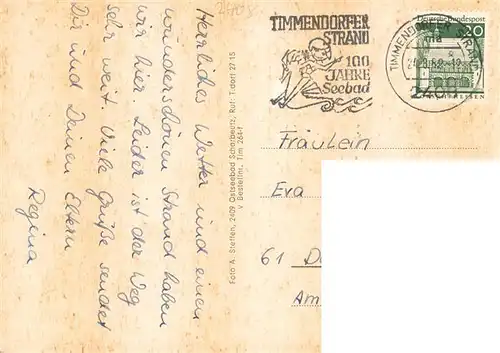 2408
TIMMENDORFER
STRAND
100
JAHRE
Seebad
TIMMENDORFER STRAND
2408
Deutsche Bundespost
20
Herrliches Wetter und einen
wunderschönen Strand haben
wir hier. Leider ist der Weg
sehr weit. Viele Grüße sendet
Dir und Deinen Eltern
Regina
Foto A. Steffen, 2409 Ostseebad Scharbeutz, Ruf: T.dorf 27 15
v Bestellnr. Tim 264-f
Fräulein
Eva
61 D
Am